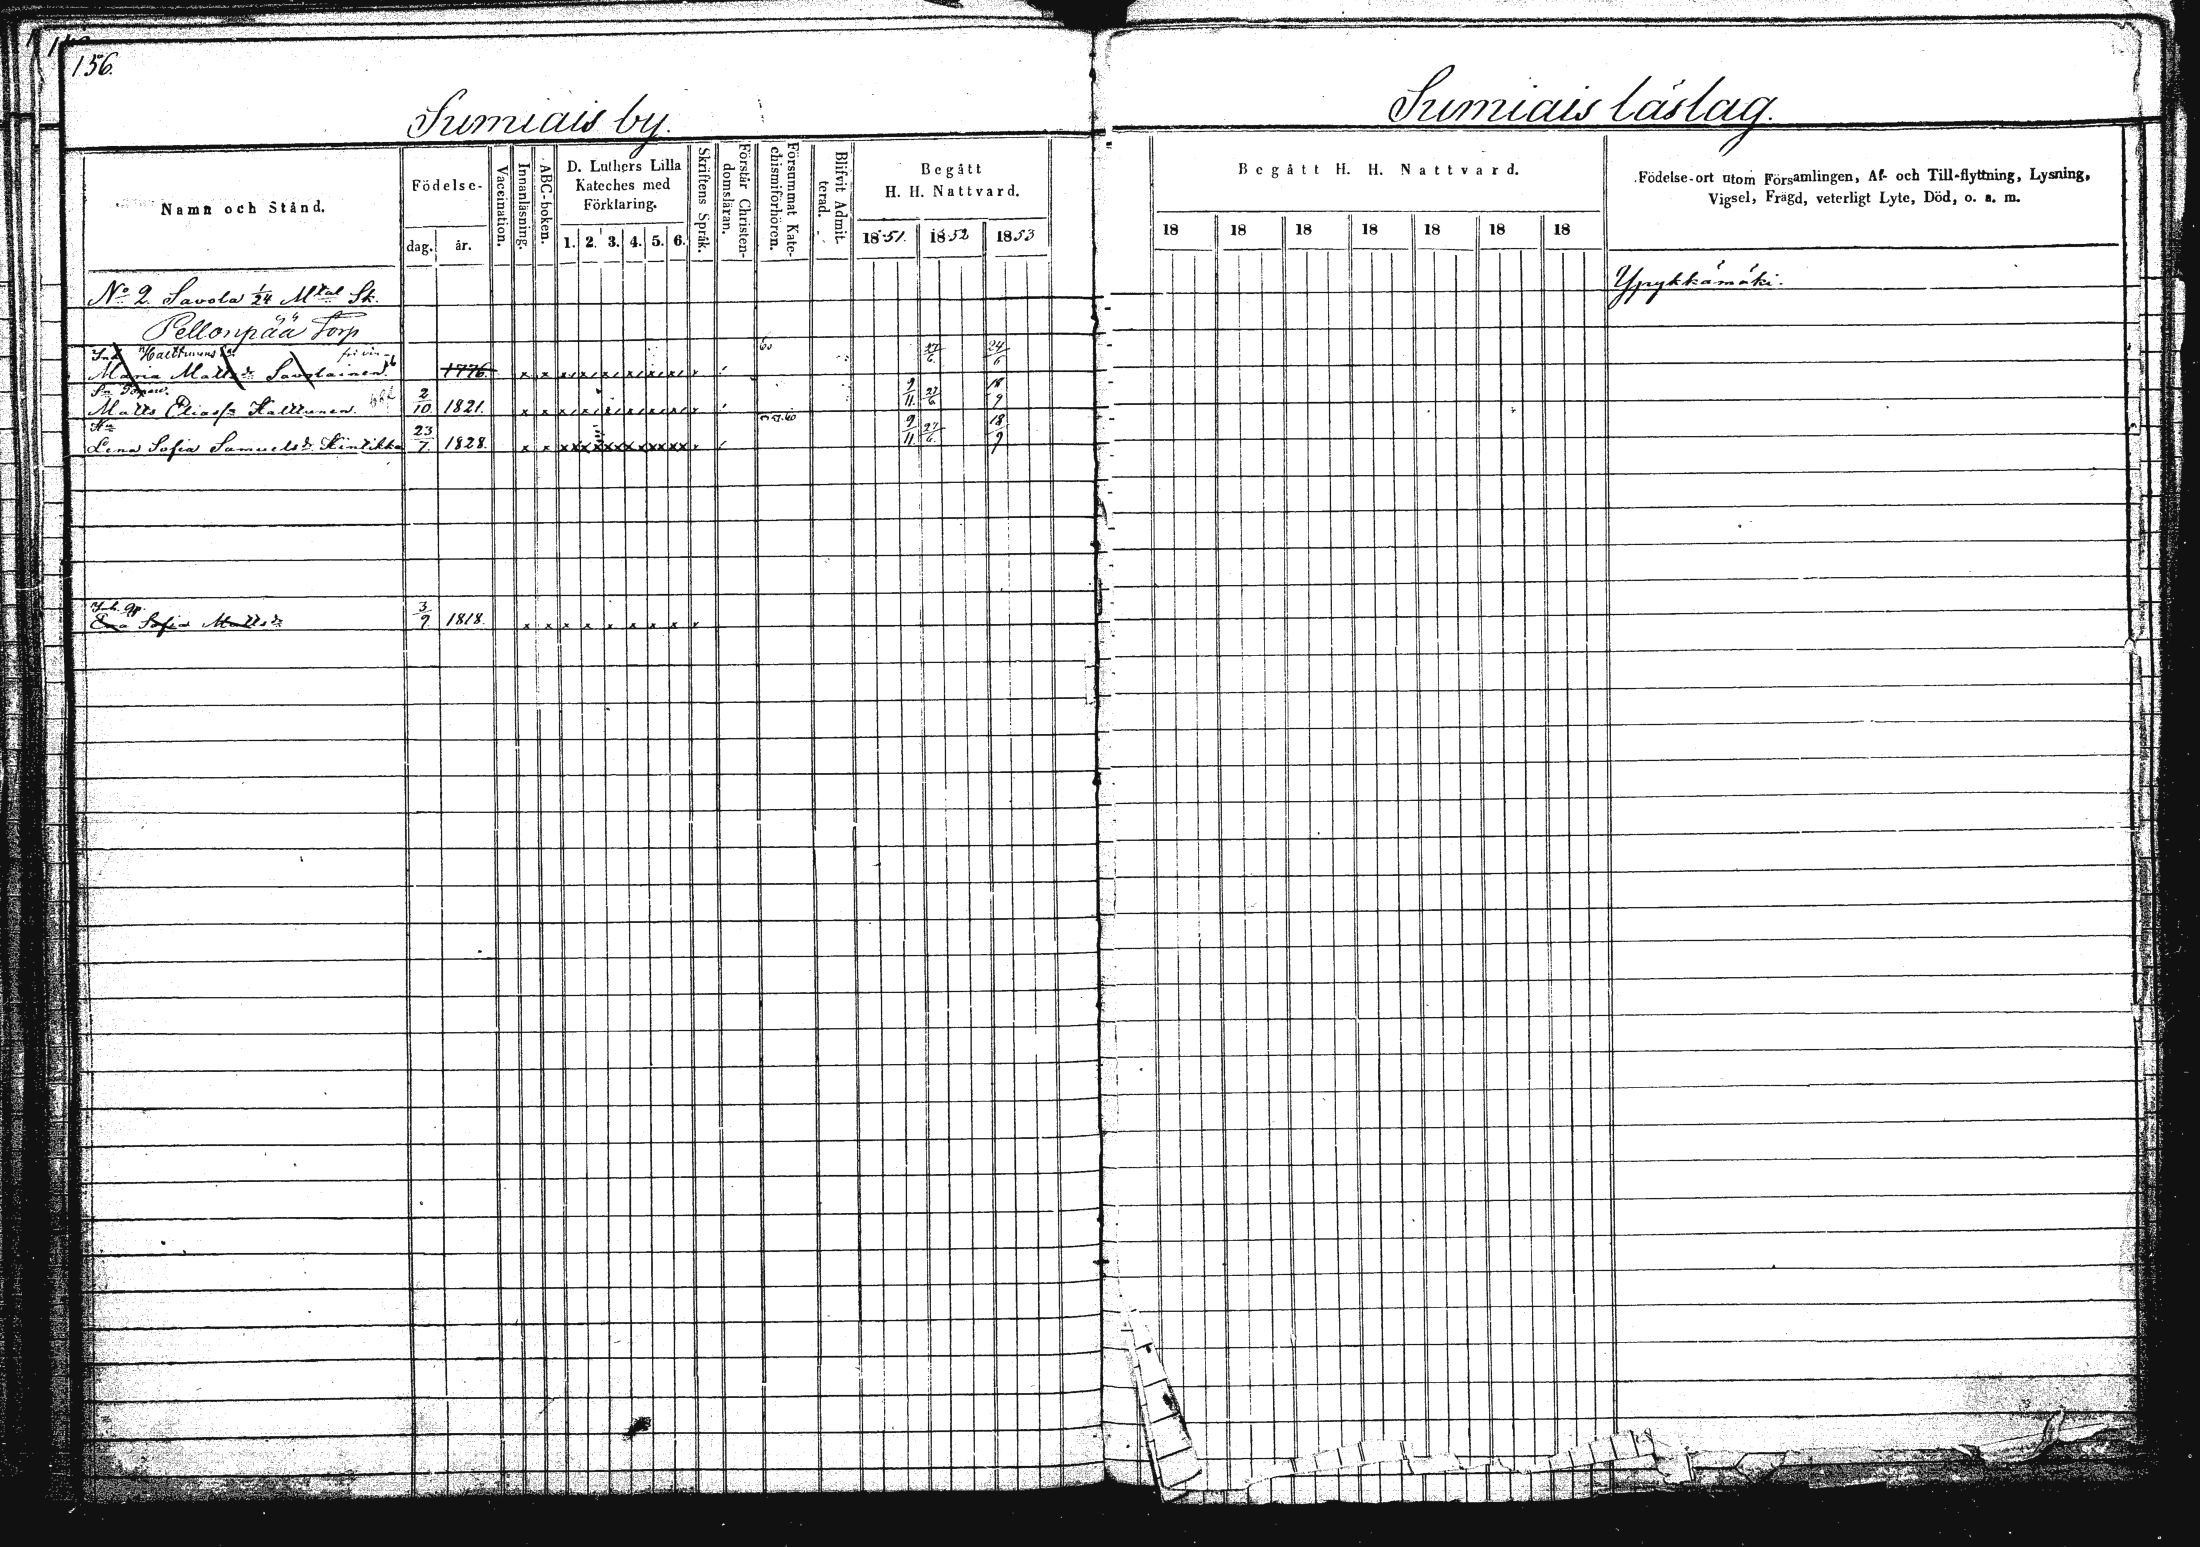 156.
Sumiais by.
Sumiais läslag.
Namn och Stånd.
Födelse-
dag. år.
Vaccination.
Innanläsning.
ABC-boken.
D. Luthers Lilla
Kateches med
Förklaring.
1. 2. 3. 4. 5. 6.
Skriftens Språk.
Förstår Christen-
domsläran.
Försummat Kate-
chismiförhören.
Blifvit Admit-
terad.
Begått
H. H. Nattvard.
1851. 1852 1853
Begått H. H. Nattvard.
18 18 18 18 18 18 18
Födelse-ort utom Församlingen, Af- och Till-flyttning, Lysning,
Vigsel, Frägd, veterligt Lyte, Död, o. s. m.
No 2. Savola 1/24 Mtal Sk.
Ypykkämäki.
Pellonpää Torp
Maria Matts dr Savolainen 1776. 60 27/6 24/6
Matts Eliass n Halttunen. 2/10 1821. 9/11 27/6 18/9
Lena Sofia Samuels dr Kintikka 23/7 1828. 9/11 27/6 18/9
Inh. gp.
Eva Sofia Matts dr 3/9 1818.